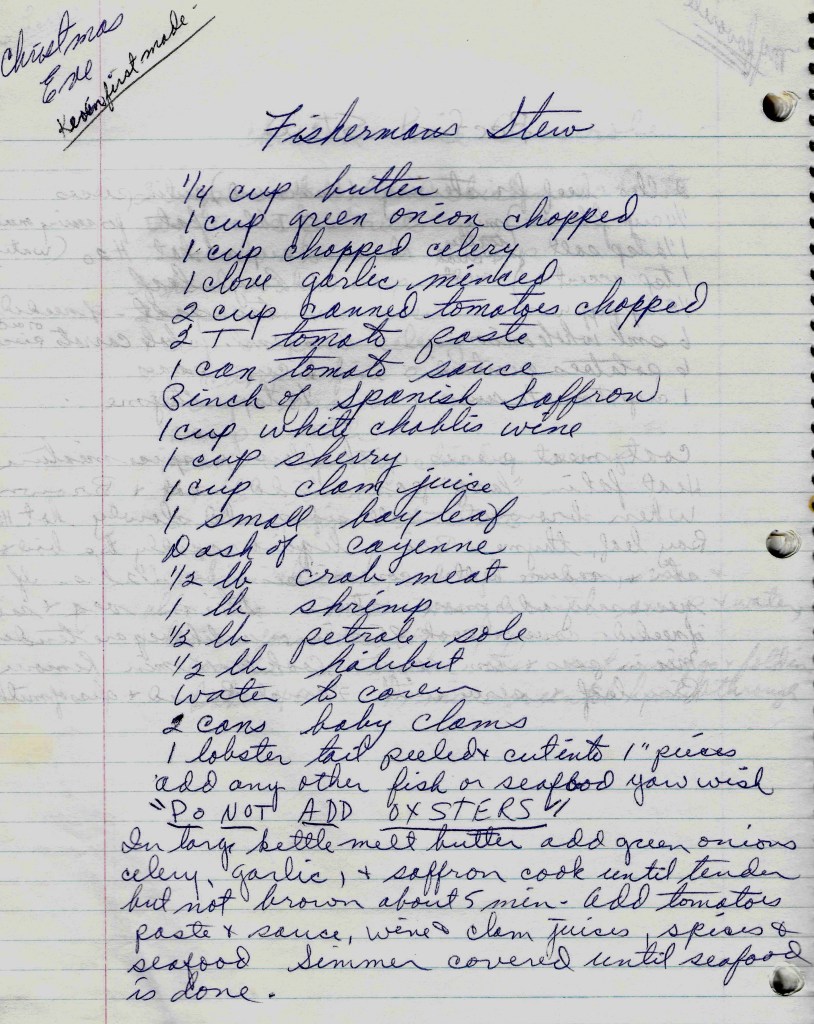 Christmas
Eve
Kevin first made -
Fishermans Stew
1/4 cup butter
1 cup green onion chopped
1 cup chopped celery
1 clove garlic minced
2 cup canned tomatoes chopped
2 T tomato paste
1 can tomato sauce
Pinch of Spanish Saffron
1 cup white chablis wine
1 cup sherry
1 cup clam juice
1 small bay leaf
Dash of cayenne
1/2 lb crab meat
1 lb shrimp
1/2 lb petrale sole
1/2 lb halibut
water to cover
2 cans baby clams
1 lobster tail peeled & cut into 1" pieces
add any other fish or seafood you wish
"DO NOT ADD OYSTERS"
In large kettle melt butter add green onions
celery, garlic, & saffron cook until tender
but not brown about 5 min - add tomatoes
paste & sauce, wine & clam juices, spices &
seafood Simmer covered until seafood
is done.